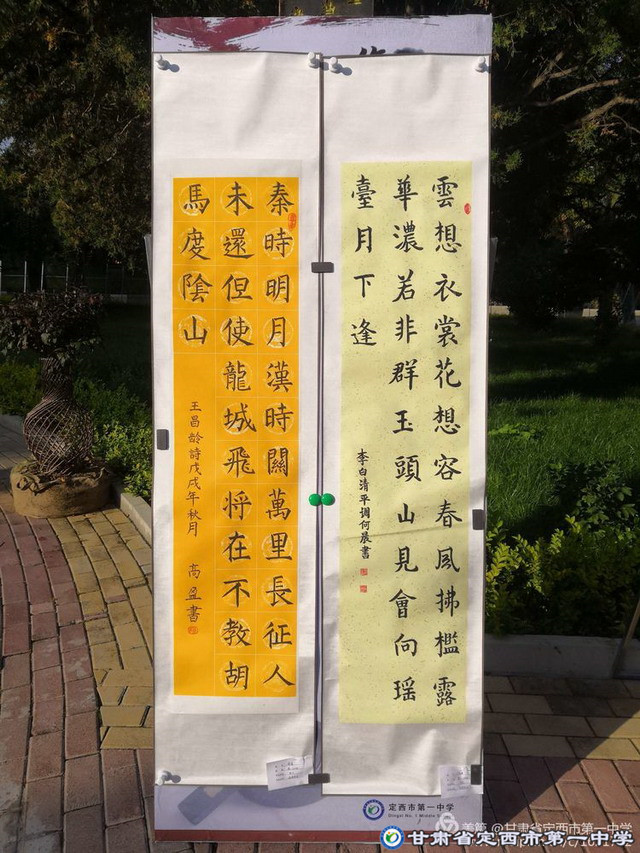 雲想衣裳花想容春風拂檻露
華濃若非群玉頭山見會向瑶
臺月下逢
李白清平调何晨書
秦時明月漢時關萬里長征人
未還但使龍城飛将在不教胡
馬度陰山
王昌龄詩戊戌年秋月 高盈書
定西市第一中学
Dingxi No. 1 Middle
美篇 @甘肃省定西市第一中学
甘肃省定西市第一中学